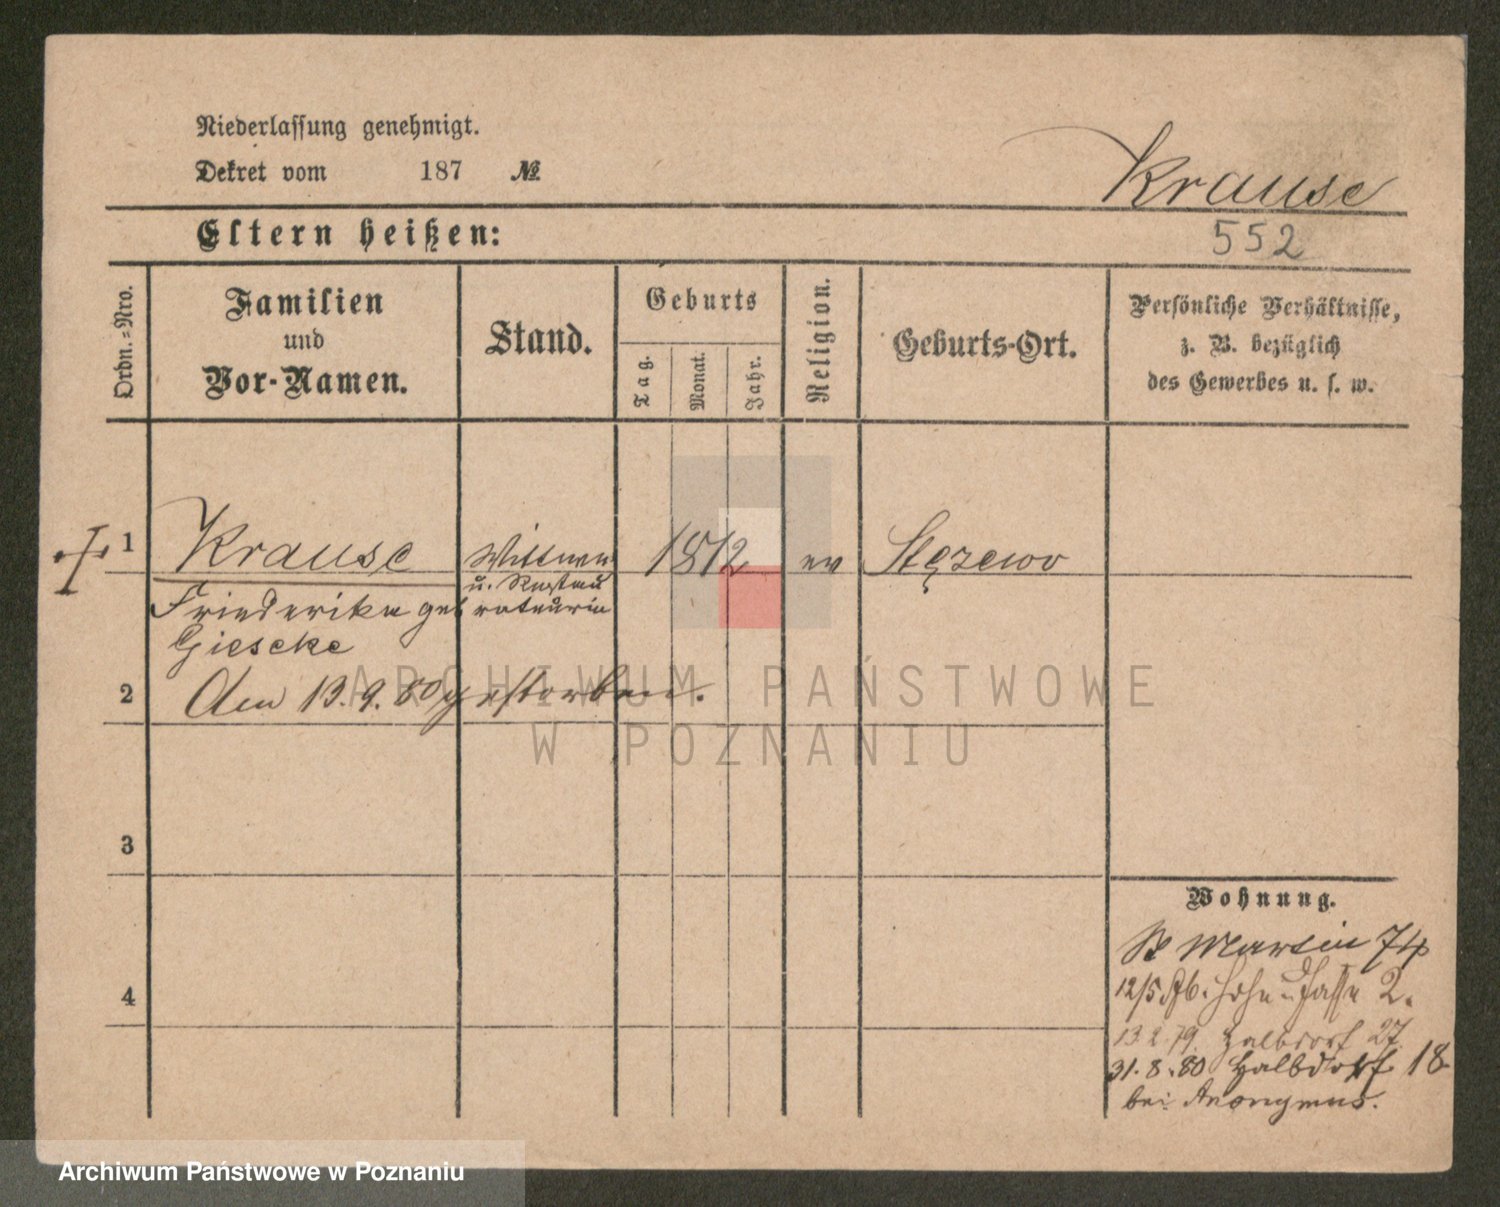 Niederlassung genehmigt.
Dekret vom 187 №
Krause
Eltern heißen:
552
Ordn.-Nro.
Familien
und
Vor-Namen.
Stand.
Geburts
Tag.
Monat.
Jahr.
Religion.
Geburts-Ort.
Persönliche Verhältnisse,
z. B. bezüglich
des Gewerbes u. s. w.
1
Krause
Wittwe
1812
ev
Stęzewo
u. Restau
Friederike geb
rateurin
Giescke
2
Am 13.9.80 gestorben.
ARCHIWUM PAŃSTWOWE
W POZNANIU
3
Wohnung.
St Martin 74
4
12/5 Hohe Gasse 2.
13.2.79. Halbdorf 27
31.8.80 Halbdorf 18
bei Anonymus.
Archiwum Państwowe w Poznaniu